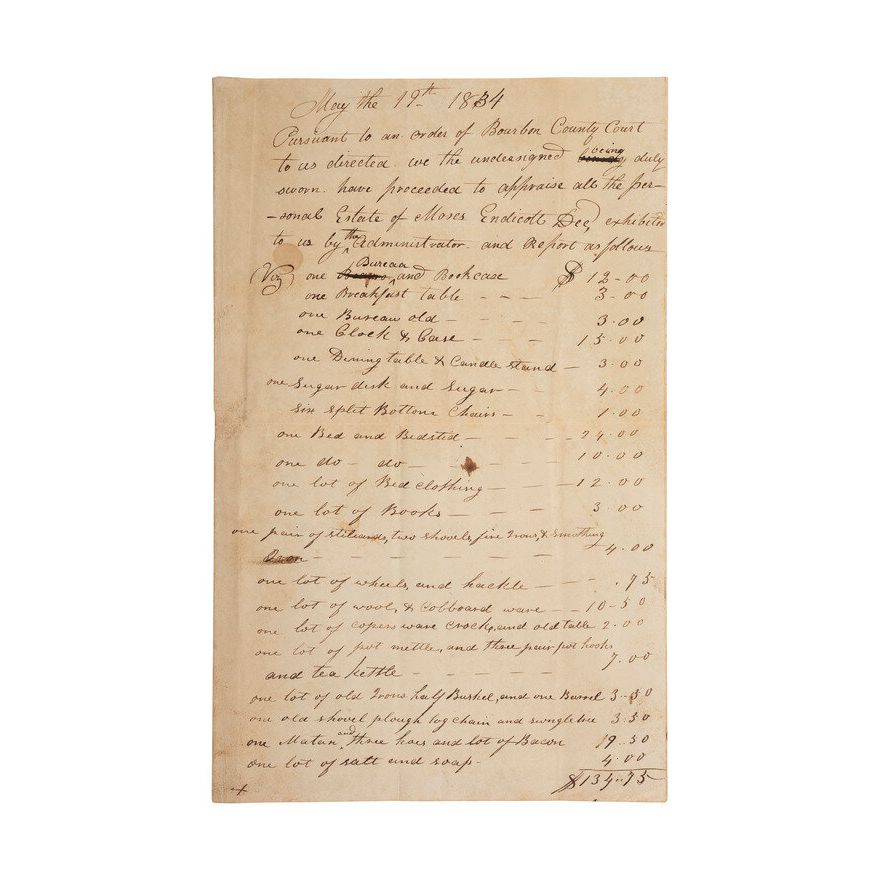 May the 19th 1834
Pursuant to an order of Bourbon County Court
to us directed we the undersigned being duly
sworn have proceeded to appraise all the per-
-sonal Estate of Moses Endicott Dec,d exhibited
to us by the Administrator and Report as follows
(Viz) one Bureau and Bookcase $ 12-00
one Breakfast table - - - 3-00
one Bureau old - - - - 3.00
one Clock & Case - - - - 15.00
one Dining table & Candle stand - 3.00
one Sugar desk and Sugar - - 4.00
six split Bottom Chairs - - 1.00
one Bed and Bedsted - - - - 24.00
one do - do - - - - - 10.00
one lot of Bed Clothing - - - 12.00
one lot of Books - - - - 3.00
one pair of stiliards, two shovels, fire Irons, & Smothing
Iron - - - - - - - - 4.00
one lot of wheels, and hackle - - - .75
one lot of wool, & Cobboard ware - - 10-50
one lot of copers ware Crocks, and old table 2.00
one lot of pot mettle, and three pair pot hooks
and tea kettle - - - - - 7.00
one lot of old Irons half Bushel, and one Barrel 3-50
one old shovel plough log chain and swingletree 3.50
one Matax and three hoes and lot of Bacon 19.50
one lot of salt and soap - 4.00
$134-75